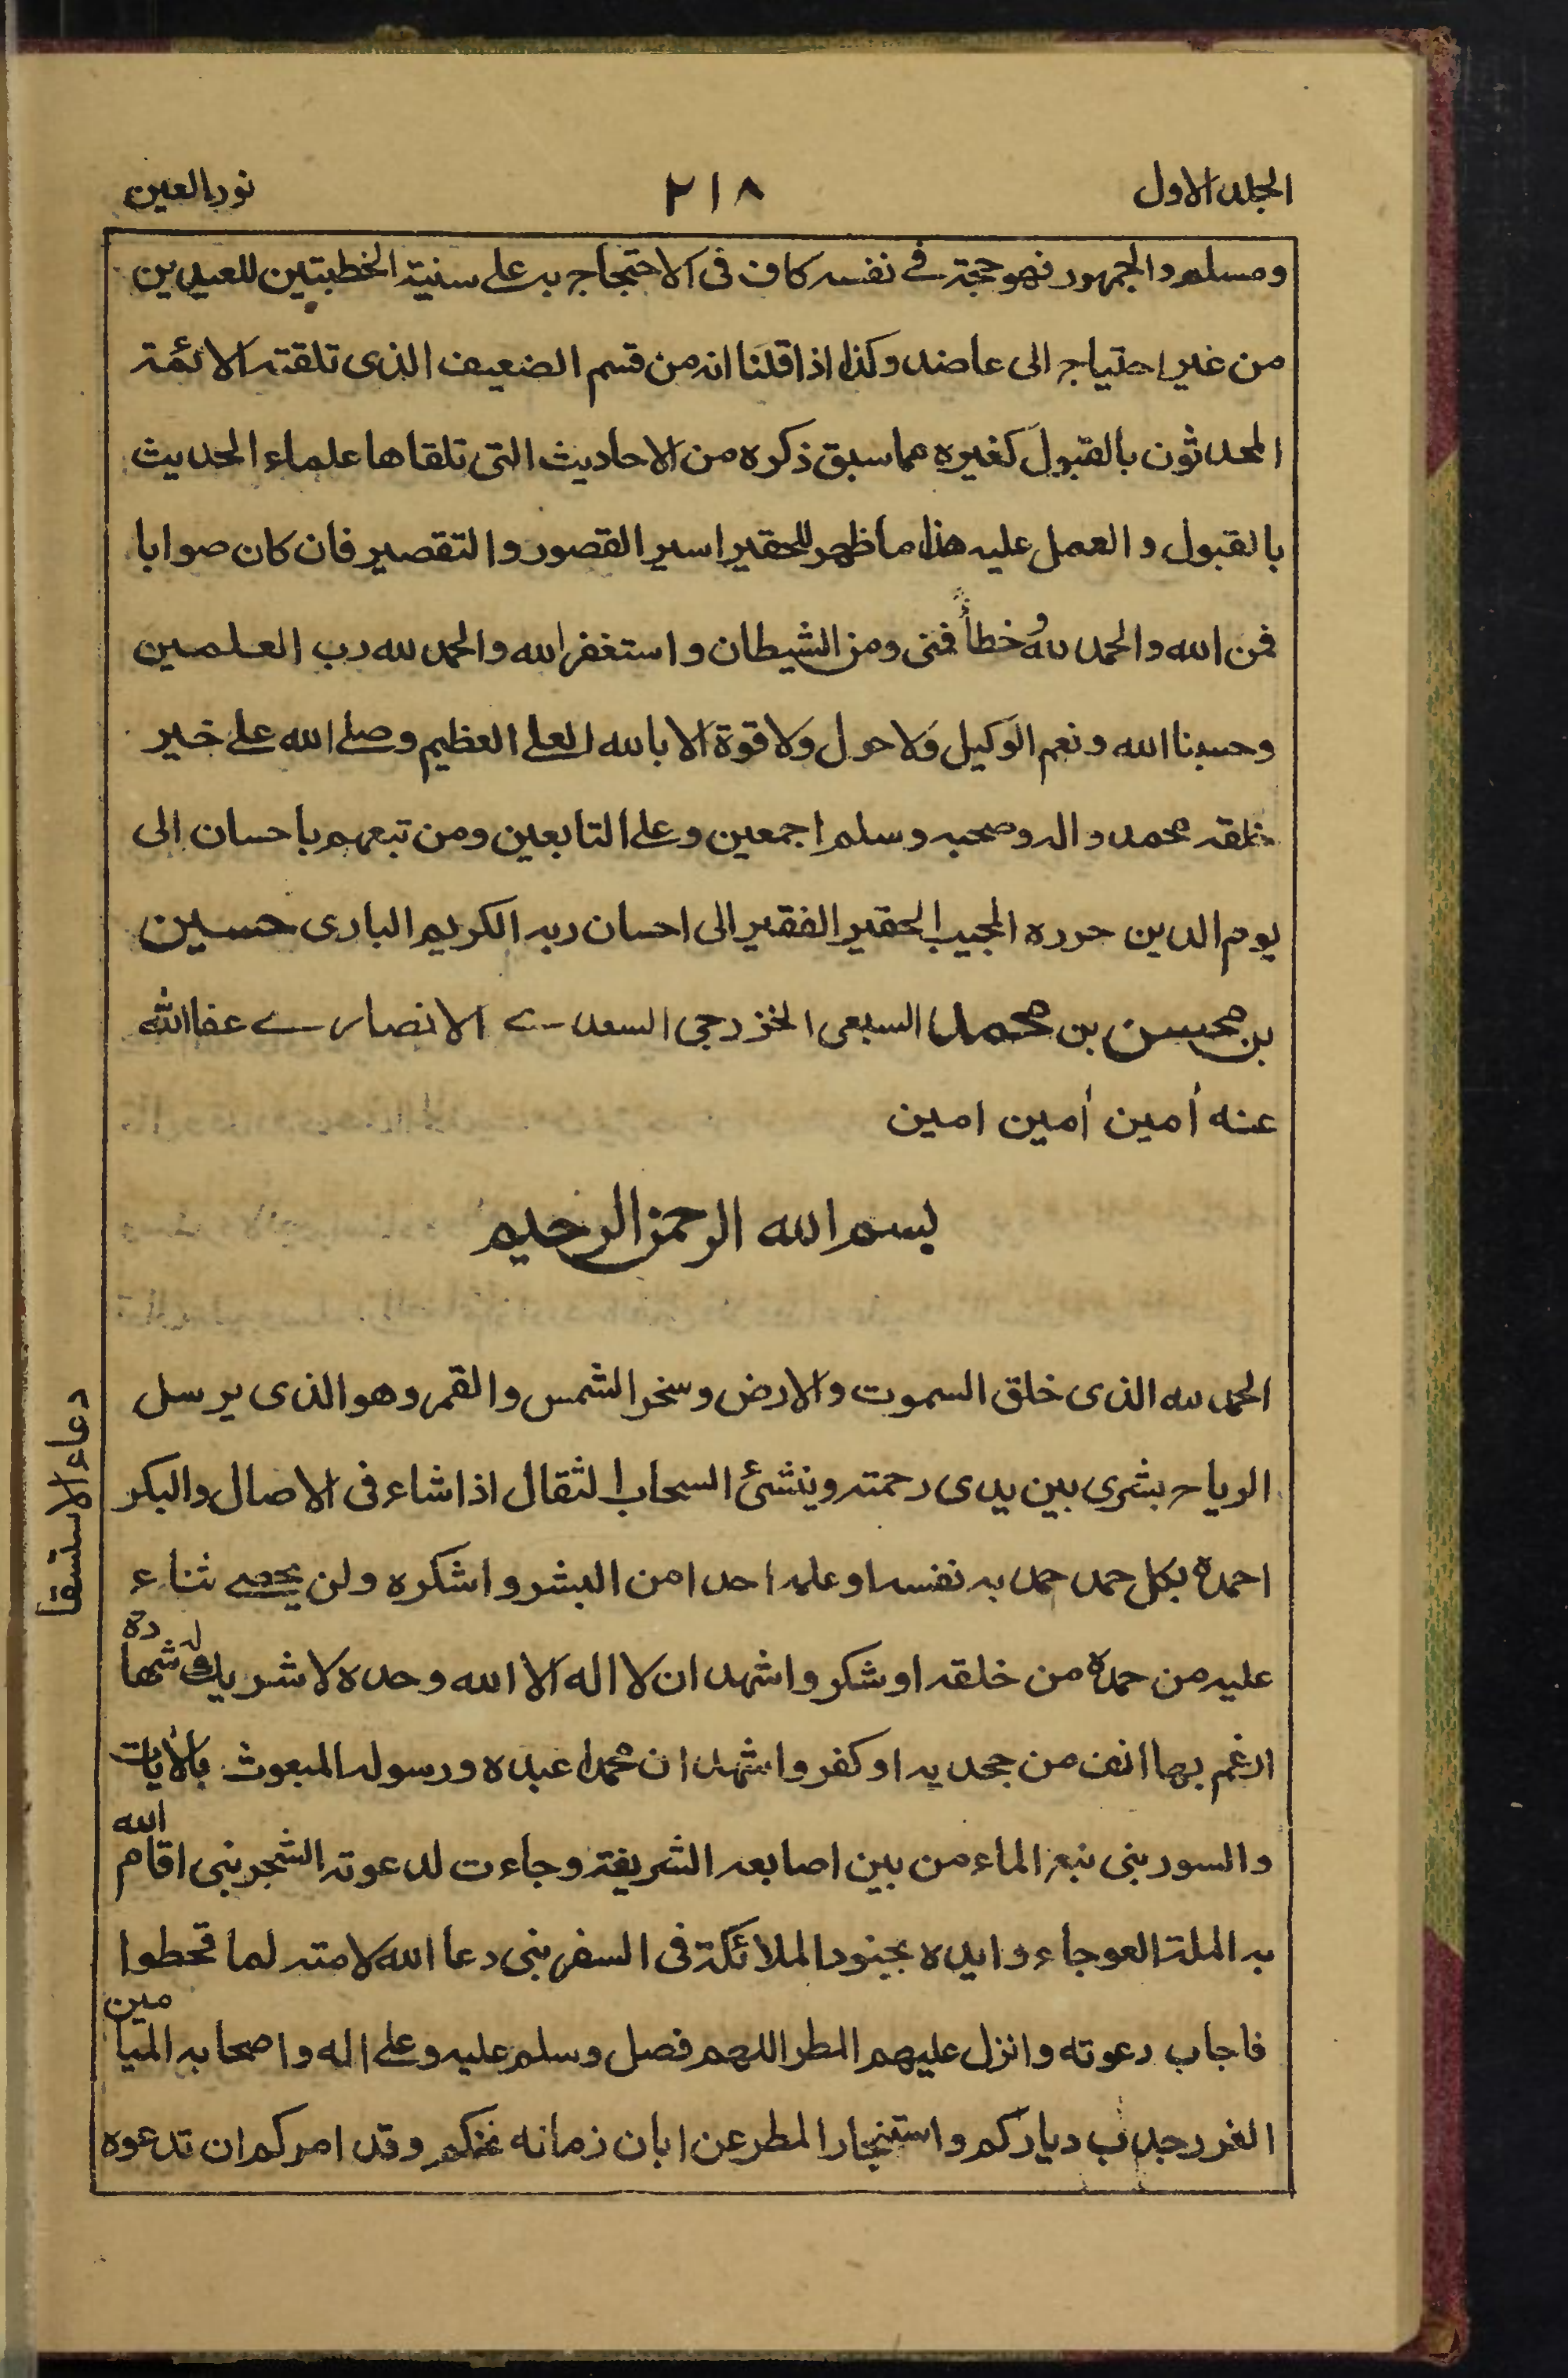 الجلد الاول ٢١٨ نور العين
ومسلم والجمهور فهو حجة في نفسه كاف في الاحتجاج به على سنية الخطبتين للعيدين
من غير احتياج الى عاضد وكذا اذا قلنا انه من قسم الضعيف الذى تلقته الائمة
المحدثون بالقبول كغيره مما سبق ذكره من الاحاديث التى تلقاها علماء الحديث
بالقبول و العمل عليه هذا ما ظهر للحقير اسير القصور والتقصير فان كان صوابا
فمن الله والحمد لله و خطأً فمنى ومن الشيطان و استغفر الله والحمد لله رب العلمين
وحسبنا الله ونعم الوكيل ولا حول ولا قوة الا بالله العلى العظيم وصلى الله على خير
خلقه محمد واله وصحبه وسلم اجمعين وعلى التابعين ومن تبعهم باحسان الى
يوم الدين حرره المجيب الحقير الفقير الى احسان ربه الكريم البارى حسين
بن محسن بن محمد السبعى الخزرجى السعدى الانصارى عفا الله
عنه أمين أمين امين
بسم الله الرحمن الرحيم
الحمد لله الذى خلق السموت والارض وسخر الشمس والقمر وهو الذى يرسل
دعاء الاستسقا
الرياح بشرى بين يدى رحمته وينشئ السحاب الثقال اذا شاء فى الاصال والبكر
احمده بكل حمد حمد به نفسه او علمه احدا من البشر واشكره ولن يحصى ثناء
عليه من حمده من خلقه او شكر واشهد ان لا اله الا الله وحده لا شريك له شهادة
ارغم بها انف من جحد به او كفر واشهد ان محمدا عبده ورسوله المبعوث بالأيات
والسور نبى نبع الماء من بين اصابعه الشريفة وجاءت لدعوته الشجر نبى اقام الله
به الملة العوجاء وايده بجنود الملائكة فى السفر نبى دعا الله لامته لما قحطوا
فاجاب دعوته وانزل عليهم المطر اللهم فصل وسلم عليه وعلى اله واصحابه الميامين
الغرر جدب دياركم واستنجار المطر عن ابان زمانه عنكم وقد امركم ان تدعوه